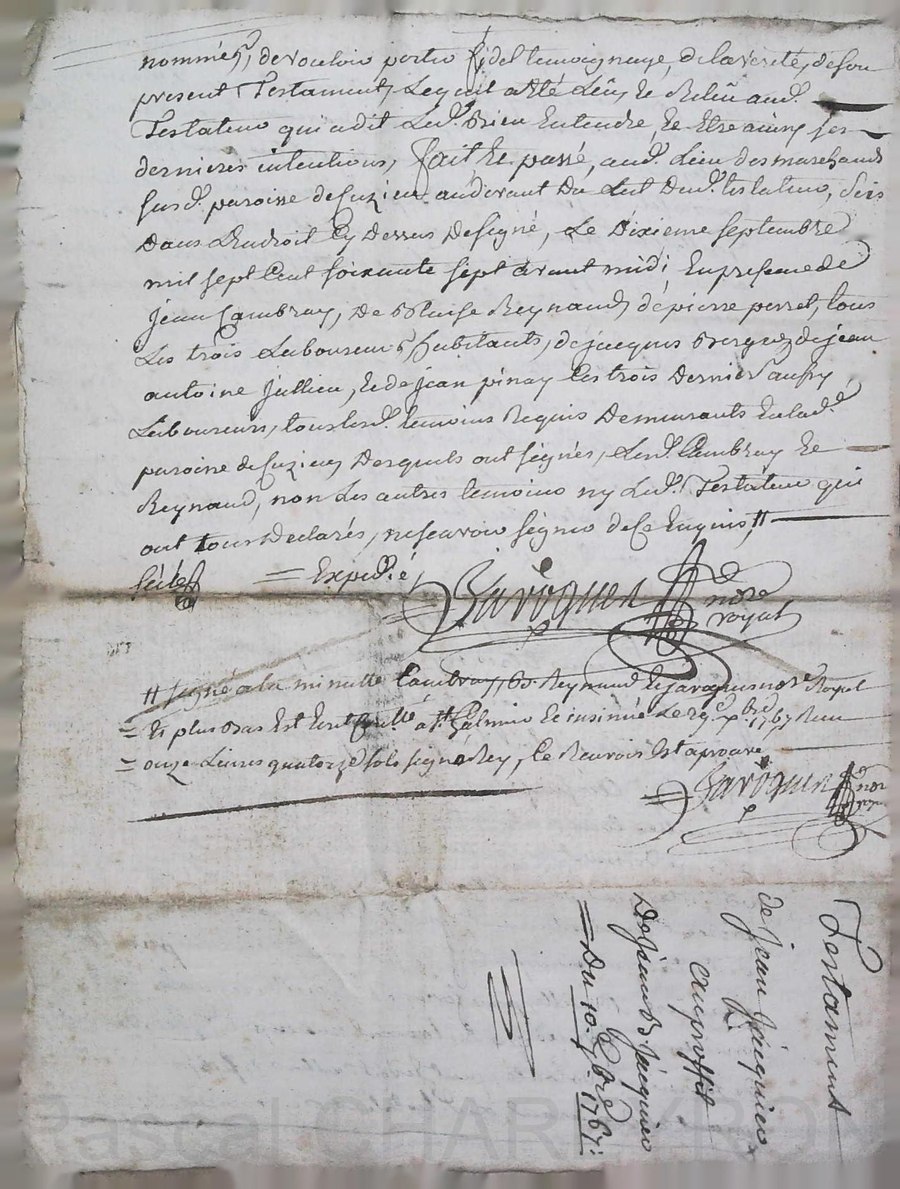 nommés, de vouloir porter fidel temoignage, de la verité, de son
present Testament, Lequel a eté Lû, et Relû aud.
Testateur qui a dit Le bien Entendre, et Etre ainsy ses
dernieres intentions, fait et passé, aud. Lieu des marchands
susd. paroisse de Cuzieu au devant du Lit Dud. testateur, Sis
Dans L'Endroit Cy Dessus Designé, Le Dixieme septembre
mil sept Cent soixante sept avant midi En presence de
jean Cambray, De Blaise Reynaud, de pierre perret, tous
Les trois Laboureurs habitants, de jacques de jean
antoine jullien, et de jean pinay Les trois Derniers aussy
Laboureurs, tous lesd. temoins Requis Demeurants En lad.
paroisse de Cuzieu, Desquels ont signés, Lesd. Cambray et
Reynaud, non Les autres temoins ny Led. Testateur qui
ont tous Declarés, ne scavoir signer de Ce Enquis, //
= Expedié
Jarôquen
nore
royal
// signé a la minutte Cambray, B. Reynaud et nore Royal
= Et plus bas Est Ecrit à st Galmier et insinué Le 1767 Reçu
= onze Livres quatorze sols signé Rey, Le Renvois Est aprouvé
Jarôquen
nore
Testament
de jean jacquier
au proffit
De jean B. jacquier
= Du 10. 7bre 1767:
Pascal CHARREYRON